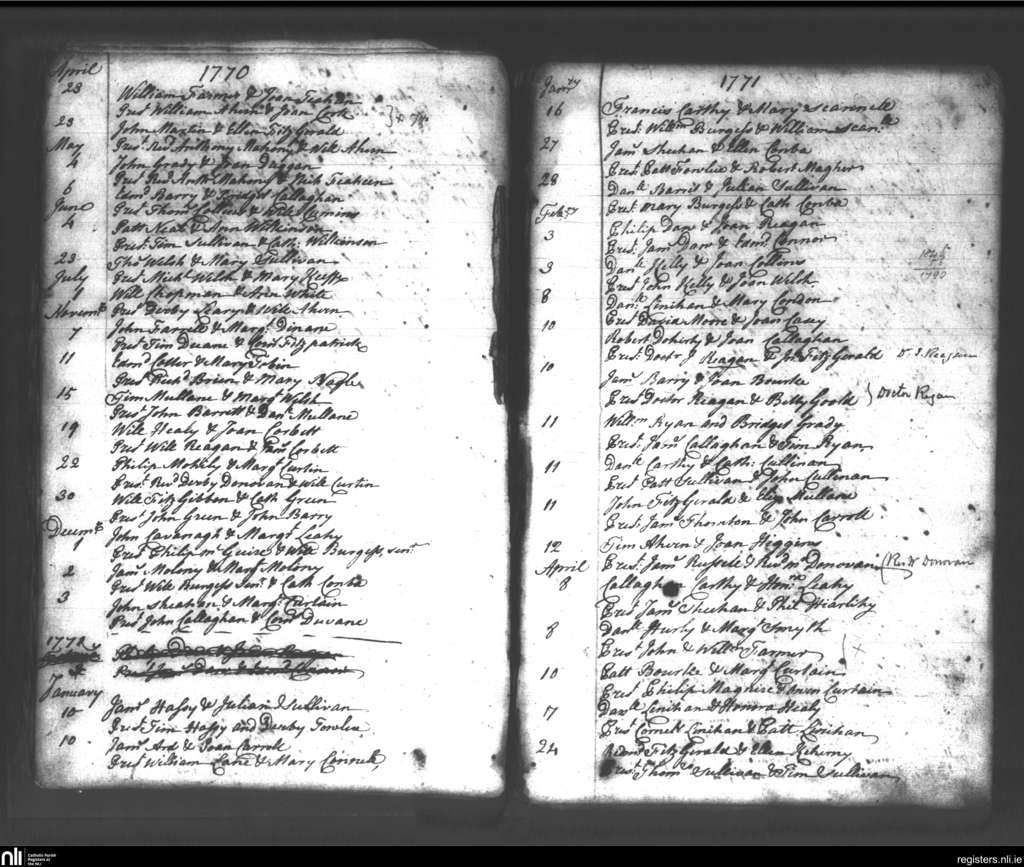 April
1770
23 William Farmer & Joan
Prest William Ahern & Joan
23 John Martin & Ellen FitzGerald
May Prest Revd Anthony Mahony & Will Ahern
4 John Grady & Joan Duggan
Prest Revd Anth Mahony &
6 Edmd Barry & Bridget Callaghan
June Prest Thoms & Will Cumins
4 Patt Neal & Ann Wilkinson
Prest Tim Sullivan & Cath: Wilkinson
23 Thos Welsh & Mary Sullivan
July Prest Michl Welsh & Mary Keeffe
1 Will Shopman & White
Novembr Prest Derby Leary & Will Ahern
7 John Farrell & Margt Dinane
Prest Tim Duane & Fitzpatrick
11 Edmd Cotter & Mary Tobin
Prest Richd Brien & Mary Nagle
15 Tim Mullane & Margt Welsh
Prest John Barrett & Danl Mullane
19 Will Healy & Joan Corbett
Prest Will Reagan & Jams Corbett
22 Philip & Margt Curtin
Prest Revd Derby Donovan & Will Curtin
30 Will FitzGibbon & Cath Green
Prest John Green & John Barry
Decembr John Cavanagh & Margt Leahy
1 Prest Philip mc Guire & Will Burgess, senr
2 Jams Molony & Margt Molony
Prest Will Burgess Senr & Cath Conba
3 John Sheahan & Margt Curtain
Prest John Callaghan & Cornl Duvane
1772
January
10 Jams Hassy & Julian Sullivan
Prest Tim Hassy and Derby Fowlue
10 Jams & Joan Carroll
Prest William Lane & Mary Connell
Janry
1771
16 Francis Carthy & Mary Scannell
Prest Willm Burgess & William Scanll
27 Jams Sheehan & Ellen Conba
Prest Patt Fowlue & Robert Magher
28 Danl Barret & Julian Sullivan
Febry Prest Mary Burgess & Cath Conba
3 Philip Dane & Joan Reagan
Prest Jams Dane & Edmd Connor
3 Danl Kelly & Joan Collins
Prest John Kelly & Joan Welsh
8 Danl Linihan & Mary Condon
Prest David Moore & Joan Casey
10 Robert Doherty & Joan Callaghan
Prest Doctr J Reagan & Jo: FitzGerald Dr. J. Reagan
10 Jams Barry & Joan Bourke
Prest Doctor Reagan & Betty Goold } Doctor Regan
11 Willm Ryan and Bridget Grady
Prest Jams Callaghan & Tim Ryan
11 Danl Carthy & Cath: Cullinan
Prest Patt Sullivan & John Cullinan
11 John FitzGerald & Eliz Mullane
Prest Jams Thornton & John Carroll
12 Tim Ahern & Joan Higgins
April Prest Jams Russell & Revd Mr Donovan (Revd Donovan
8 Callaghan Carthy & Leahy
Prest Jams Sheehan & Phil Hiarlihy
8 Danl Hurly & Margt Smyth
Prest John & Willm Farmer
10 Patt Bourke & Margt Curtain
Prest Philip Maguire & Curtain
17 Danl Linihan & Honora Healy
Prest Cornels Linihan & Patt Linihan
24 Edmd FitzGerald & Ellen
Prest Thoms Sullivan & Tim Sullivan
nli
Catholic Parish
Registers at
the NLI
registers.nli.ie